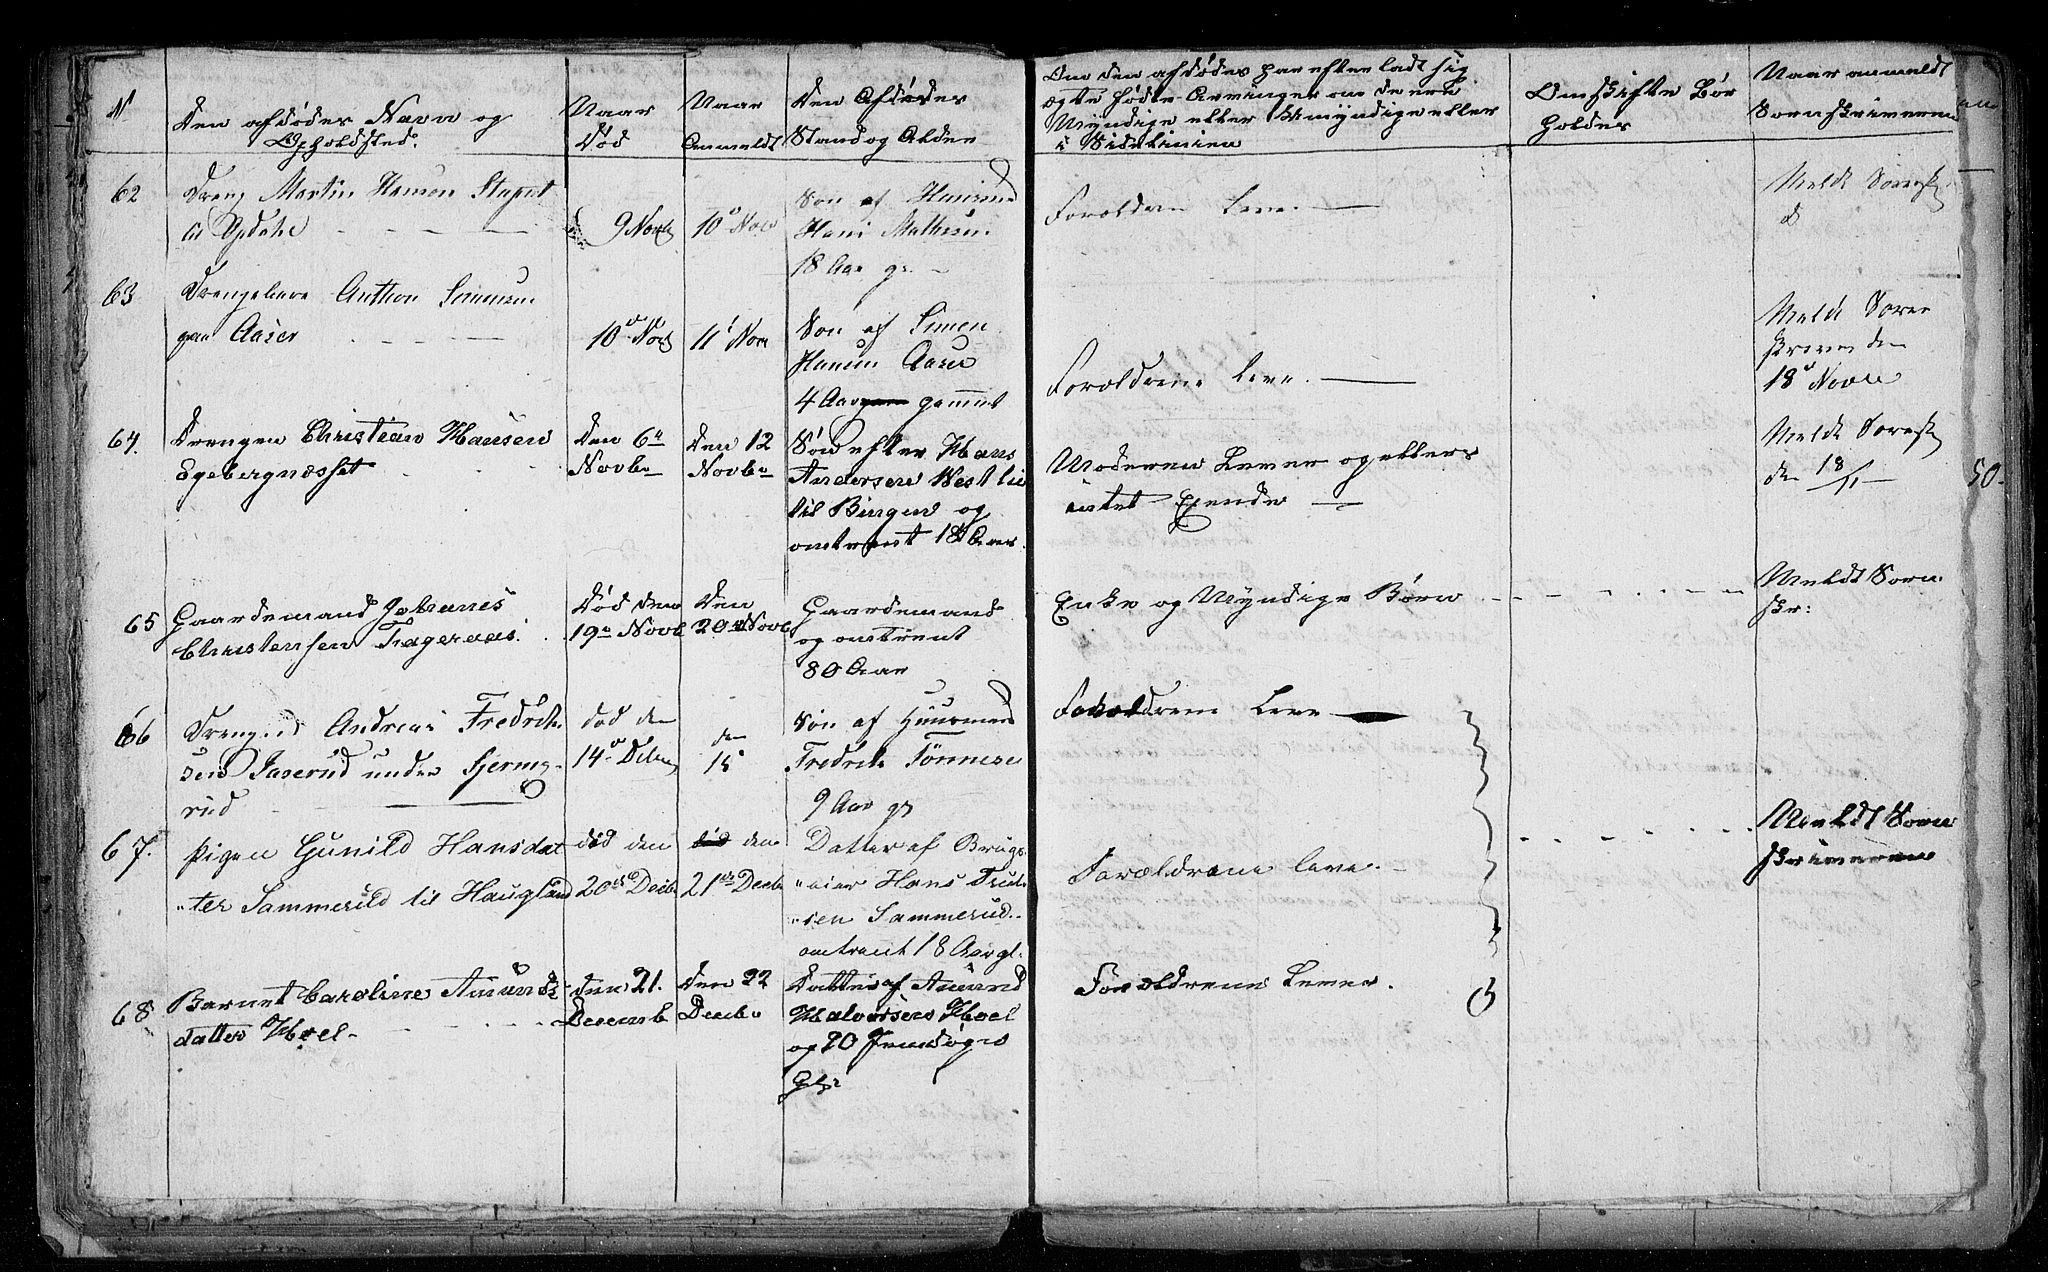 N
Den afdødes Navn og
Opholdsted.
Naar
Død
Naar
Anmeldt
Den Afdødes
Stand og Alder
Om den afdødes har efterladt sig
ægte fødte Arvinger om de ere
Myndige eller Umyndige eller
i Sidelinien
Om Skifte Bør
holdes
Naar anmeldt
Sorenskriveren
62
Dreng Martin Hansen Stupet
9 Novb
10 Nov
Søn af
Hans Mathisen
18 Aar g:
Forældren Leve.
Meldt Sorensk
d
63
Drengebarn Anthon Simensen
paa Aaser
10 Novb
11 Nov
Søn af Simen
Hansen Aaser
4 Aar gammel
Forældrene leve.
Meldt Soren
skriver den
18 Novbr
64.
Drengen Christian Hansen
Egebergnæsset
Den 6te
Novbr
Den 12
Novbr
Søn efter Hans
Andersen Westlie
til Bingen og
omtrent 18 Aar
Moderen Lever og ellers
intet Ejende
Meldt Sorensk
den 18/11
50.
65
Gaardemand Johanes
Christensen Tragernæs
Død den
19de Novb
Den
20de Novb
Gaardemand
og omtrent
80 Aar
Enke og Myndige Børn
Meldt Soren
skr:
66
Drengen Andreas Fredrik
sen Jaserud under Hjerme
rud
død den
14de Debr
den
15
Søn af Huusmand
Fredrik Tønnese
9 Aar gl
Forældrene Leve
67.
Pigen Gunild Hansdat
"ter Sammerud til Hauglund
død den
20de Decbr
død den
21de Decbr
Datter af Brugs
"eier Hans Truls
"sen Sammerud
omtrent 18 Aar gl.
Forældrene leve.
Meldt Soren
skriveren
68
Barnet Caroline Amunds
datter Hoel
den 21.
Decemb
Den 22
Decbr
Datter af Amund
Halvorsen Hoel
og 20
Gl:
Forældrene Lever.